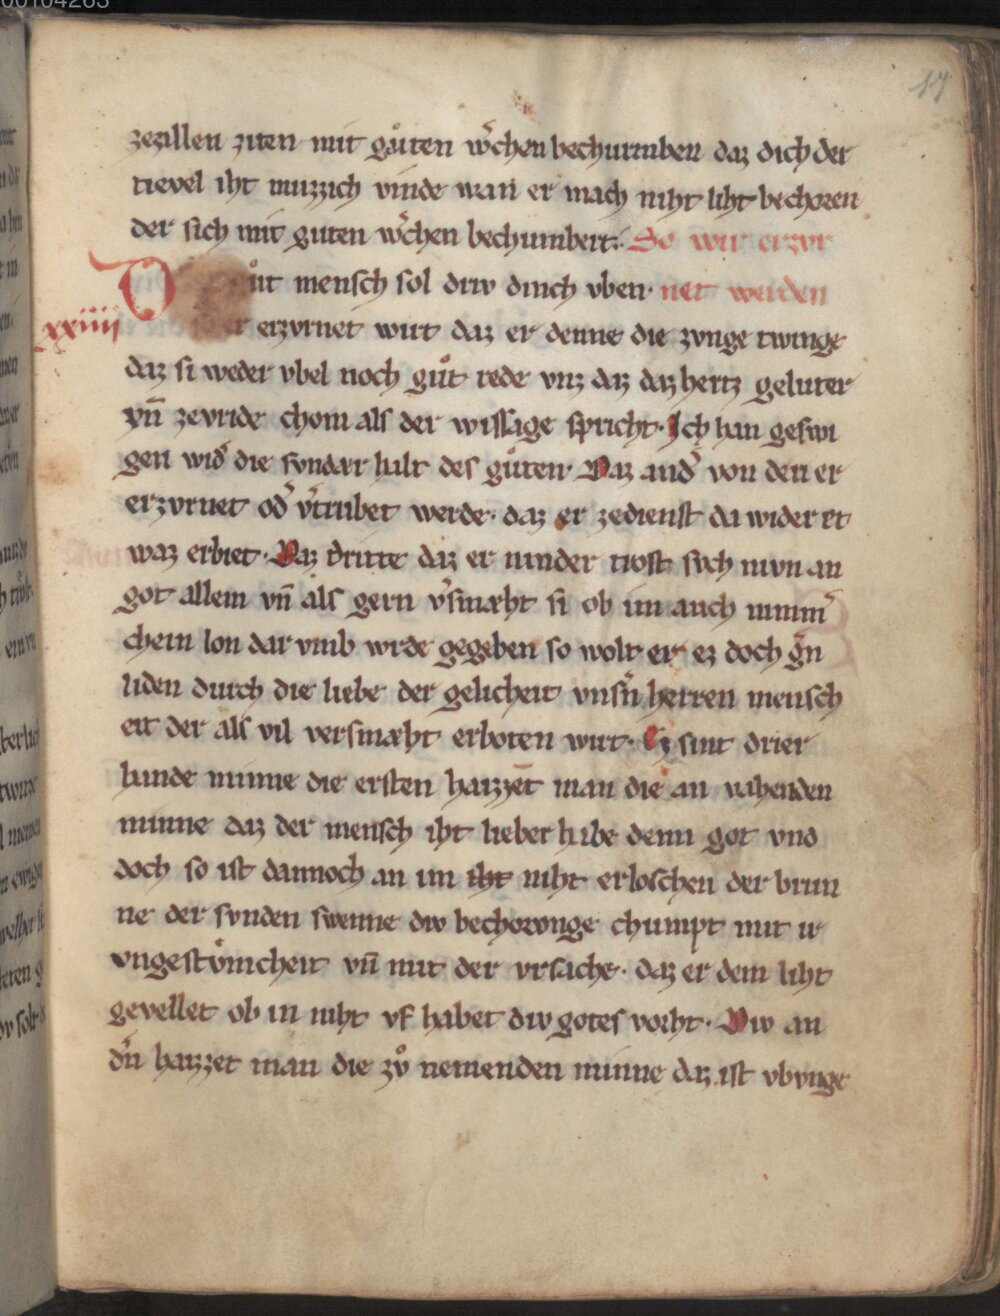 17
zezallen ziten mit guͦten wͤrchen bechumben daz dich der
tievel iht muzzich vinde wan er mach niht liht bechoren
der sich mit guten wͤrchen bechumbert. So wir erzvr
D guͦt mensch sol driv dinch vben net werden
xxiiii er erzvrnet wirt daz er denne die zvnge twinge
daz si weder vbel noch guͦt rede vnz daz daz hertz geluter
vn̄ zevride chom als der wissage spricht. Ich han geswi
gen wid͛ die svndær halt des guͦten. Daz and͛ von den er
erzvrnet od͛ v͛trubet werde. daz er zedienst da wider et
waz erbiet. Daz dritte daz er minder trost svch nivn an
got allein vn̄ als gern v͛smæht si ob im auch nimm͛
chein lon dar vmb wrde gegeben so wolt er ez doch g͛n
liden durch die liebe der gelicheit vns͛n herren mensch
eit der als vil versmæht erboten wirt. Ez sint drier
hande minne die ersten haizzet man die an vahenden
minne daz der mensch iht lieber habe denn got vnd
doch so ist dannoch an im iht niht erloschen der brun
ne der svnden swenne div bechorvnge chumpt mit ir
vngestvͦmcheit vn̄ mit der vrsache. daz er dem liht
gevellet ob in niht vf habet div gotes vorht. Div an
d͛n haizzet man die zvͦ nemenden minne daz ist vbvnge